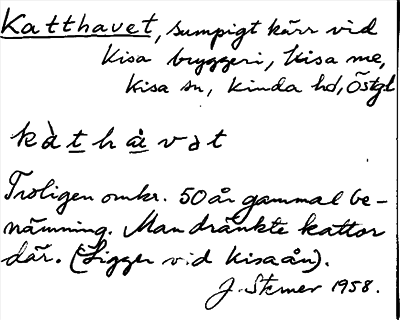 Katthavet, sumpigt kärr vid
Kisa bryggeri, Kisa me,
Kisa sn, Kinda hd, Östgl
kàthàvət
Troligen omkr. 50 år gammal be-
nämning. Man dränkte kattor
där. (Ligger vid Kisaån).
J. Stemer 1958.